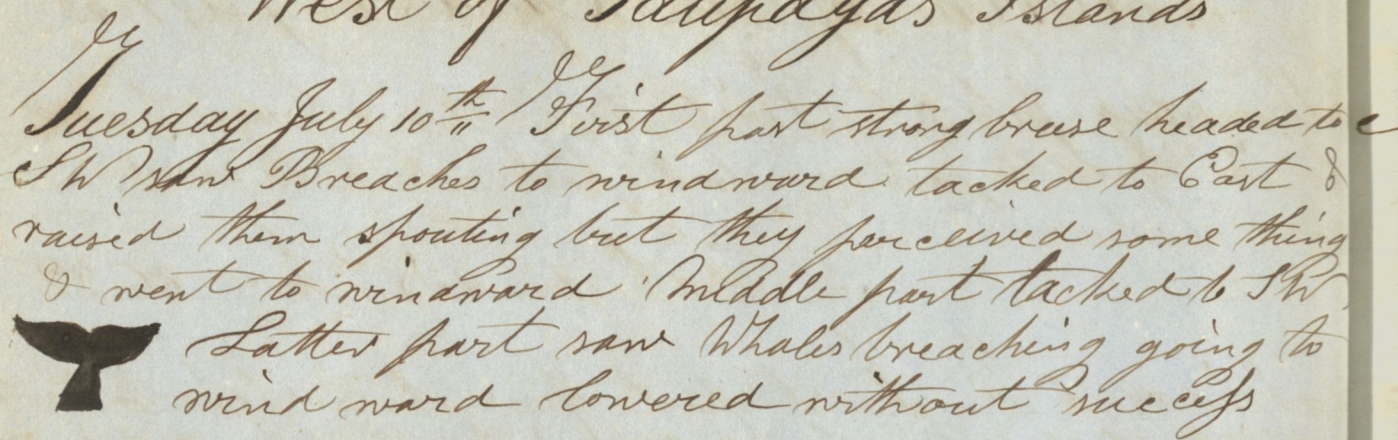 West of Islands
Tuesday July 10th First part strong breese headed to
SW saw Breaches to windward tacked to East &
raised them spouting but they perceived some thing
& went to windward Middle part tacked to SW
Latter part saw Whales breaching going to
wind ward lowered without success